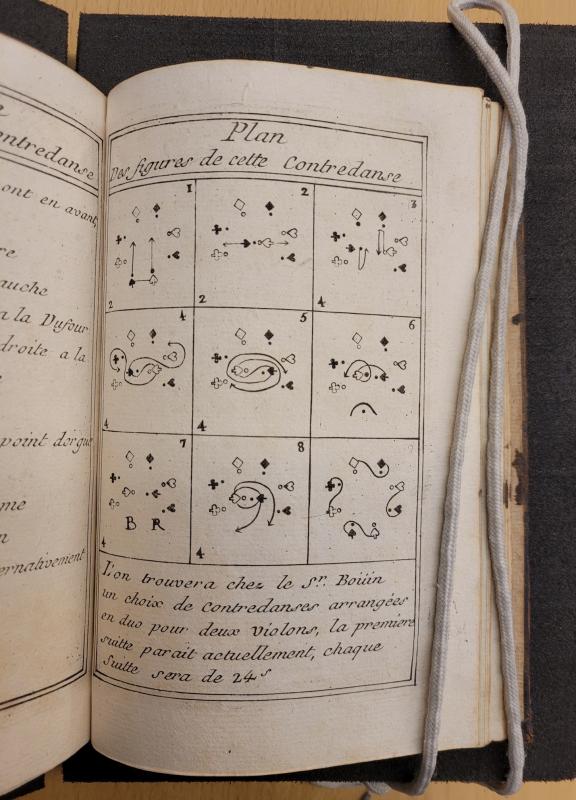 ontredanse
ont en avant,
re
auche
a la Dufour
droite a la
point dorgue
me
n
ernativement
Plan
Des figures de cette Contredanse
1
2
3
2
2
4
4
5
6
4
7
8
B R
4
4
L'on trouvera chez le Sr. Boüin
un choix de Contredanses arrangées
en duo pour deux violons, la premiere
suitte parait actuellement, chaque
Suitte sera de 24 s